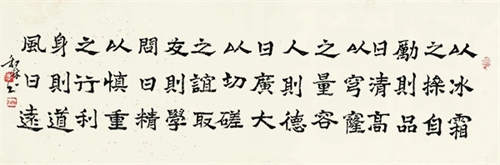 以冰霜
之操自
勵則品
日清高
以穹窿
之量容
人則德
日廣大
以切磋
之誼取
友則學
問日精
以慎重
之行利
身則道
風日遠